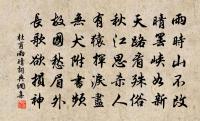 雨時山不改
晴罷峽如新
天路看殊俗
秋江思殺人
有猿揮淚盡
無犬附書頻
故國愁眉外
長歌欲損神
杜甫雨晴詩